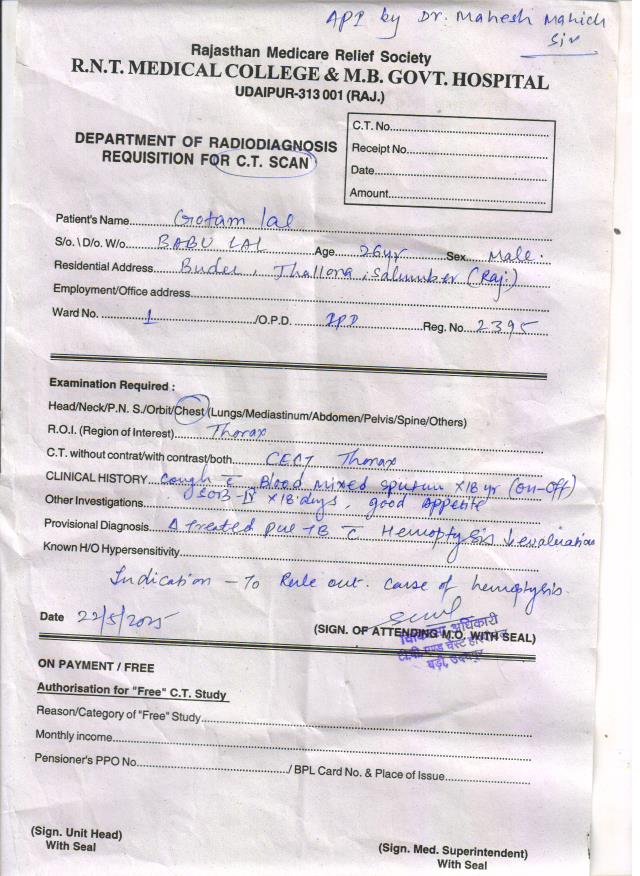 APP by Dr. Mahesh Mahich
Sir
Rajasthan Medicare Relief Society
R.N.T. MEDICAL COLLEGE & M.B. GOVT. HOSPITAL
UDAIPUR-313 001 (RAJ.)
DEPARTMENT OF RADIODIAGNOSIS
REQUISITION FOR C.T. SCAN
C.T. No.
Receipt No.
Date
Amount
Patient's Name Gotam lal
S/o. \ D/o. W/o BABU LAL Age 26yr Sex Male.
Residential Address Budel, Thallora, Salumber (Raj.)
Employment/Office address
Ward No. 1 /O.P.D. IPD Reg. No. 2395
Examination Required :
Head/Neck/P.N. S./Orbit/Chest (Lungs/Mediastinum/Abdomen/Pelvis/Spine/Others)
R.O.I. (Region of Interest) Thorax
C.T. without contrat/with contrast/both CECT Thorax
CLINICAL HISTORY cough c̄ Blood mixed sputum x18 yr (on-off)
Other Investigations SOB-IV x18 days, good appetite
Provisional Diagnosis A treated pul TB c̄ Hemoptysis evaluation
Known H/O Hypersensitivity
Indication - To Rule out. cause of hemoptysis.
Date 22/5/2025
(SIGN. OF ATTENDING M.O. WITH SEAL)
चिकित्सा अधिकारी
टी.बी. एण्ड चेस्ट
बड़ी, उदयपुर
ON PAYMENT / FREE
Authorisation for "Free" C.T. Study
Reason/Category of "Free" Study
Monthly income
Pensioner's PPO No. / BPL Card No. & Place of Issue
(Sign. Unit Head)
With Seal
(Sign. Med. Superintendent)
With Seal